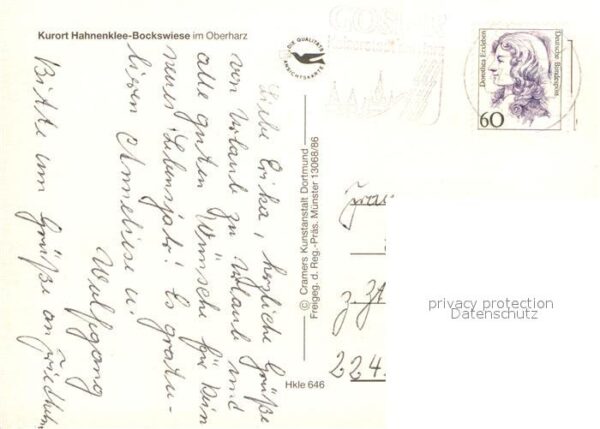 Kurort Hahnenklee-Bockswiese im Oberharz
DIE QUALITÄTS
ANSICHTSKARTE
GOSLAR
Kaiserstadt am Harz
Dorothea Erxleben
Deutsche Bundespost
60
Liebe Erika, herzliche Grüße
von Urlaub zu Urlaub und
alle guten Wünsche für Dein
neues Lebensjahr! Es gratu-
lieren Anneliese u.
Wolfgang
Bitte um Grüße an Friedhelm
© Cramers Kunstanstalt Dortmund
Freigeg. d. Reg.-Präs. Münster 13068/86
Hkle 646
Frau
z. Zt
224
privacy protection
Datenschutz